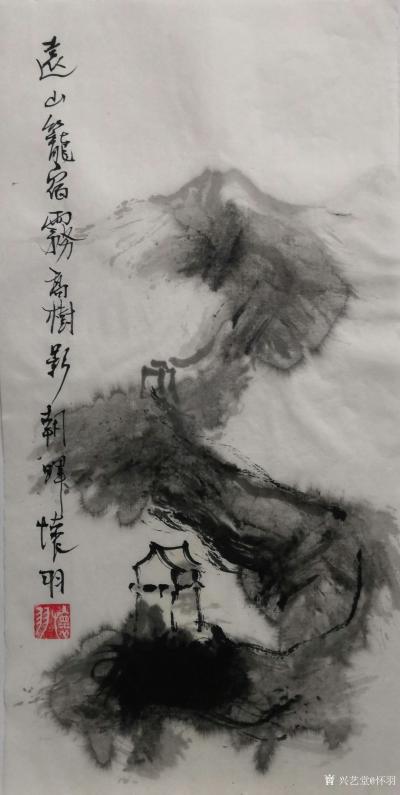 遠山籠宿霧高樹影朝暉懷羽
懷羽
兴艺堂@怀羽